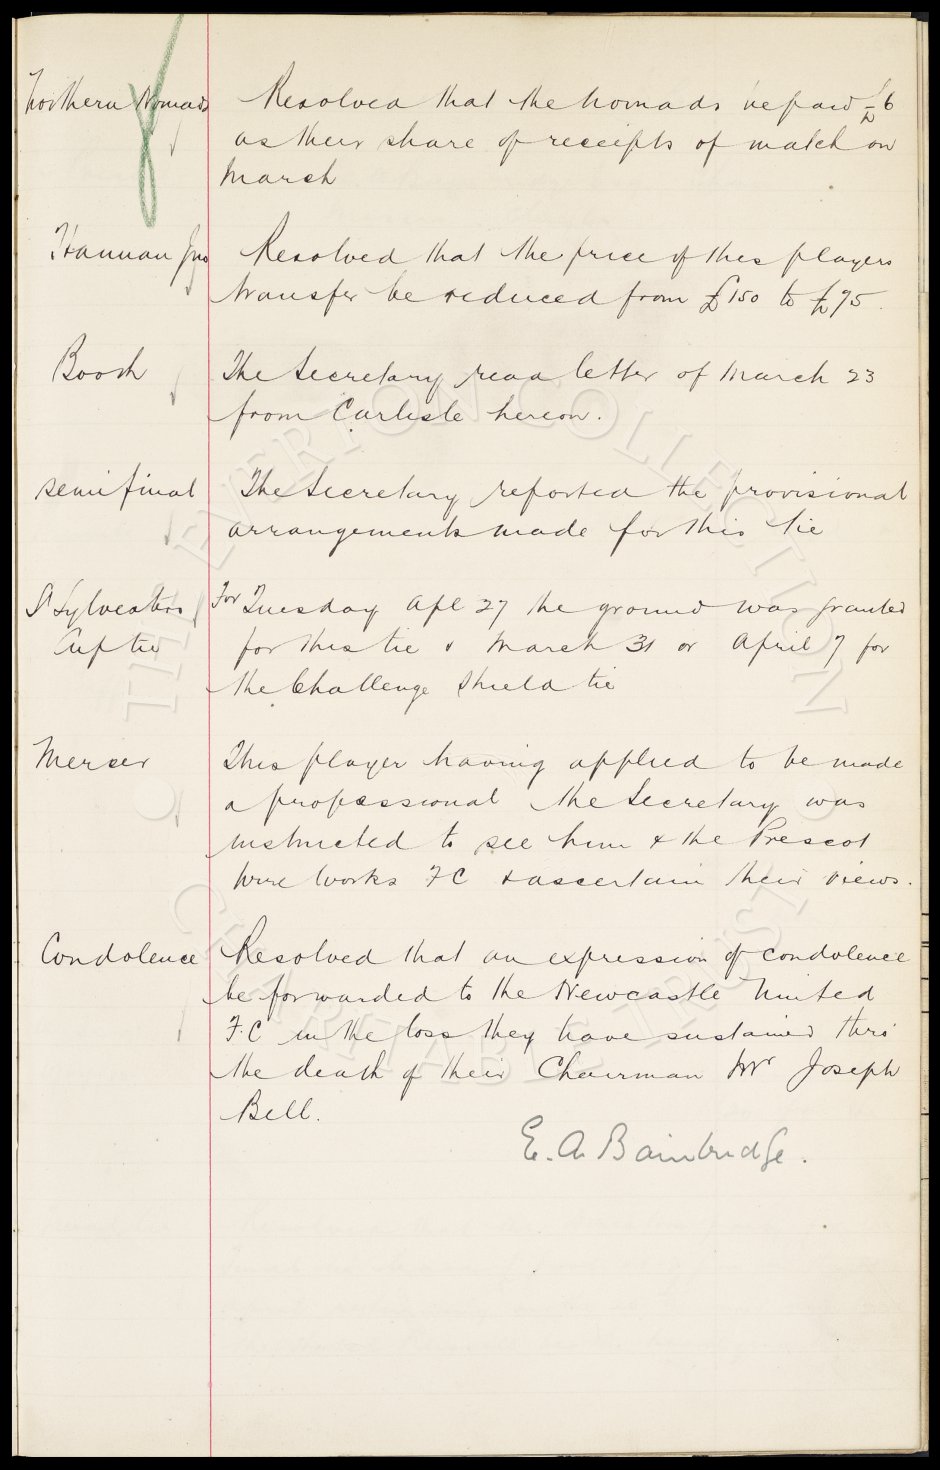 Northern Nomads
Resolved that the Nomads be paid £6
as their share of receipts of match on
March
Hannan Jno
Resolved that the price of this players
transfer be reduced from £150 to £75.
Booth
The Secretary read letter of March 23
from Carlisle hereon.
semi final
The Secretary reported the provisional
arrangements made for this tie
St Sylvesters
Cup tie
For Tuesday Apl 27 the ground was granted
for this tie & March 31 or April 7 for
the Challenge Shield tie
Mercer
This player having applied to be made
a professional the Secretary was
instructed to see him & the Prescot
Wire Works F C & ascertain their views.
Condolence
Resolved that an expression of condolence
be forwarded to the Newcastle United
F.C in the loss they have sustained thro'
the death of their Chairman Mr Joseph
Bell.
E. A. Bainbridge.
© THE EVERTON COLLECTION
CHARITABLE TRUST